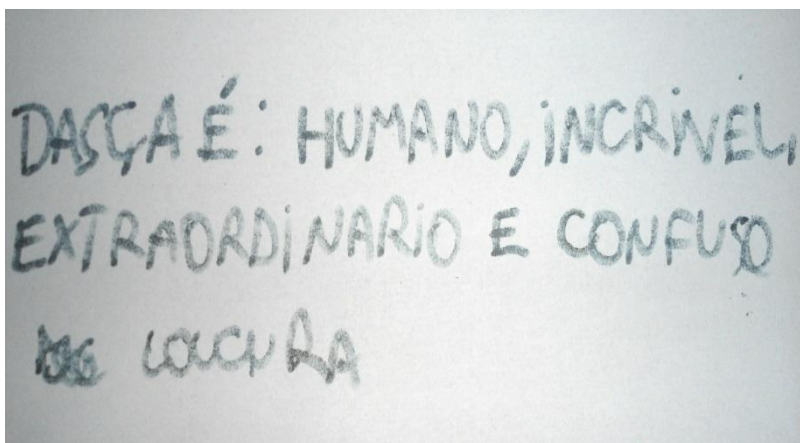 DASÇA É: HUMANO, INCRÍVEL,
EXTRAORDINARIO E CONFUSO
LOUCURA